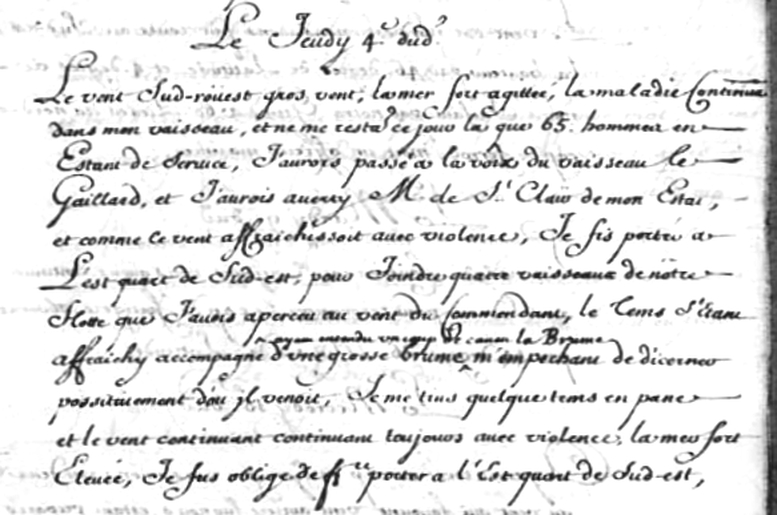 Le Jeudy 4.e dud.t
Le vent Sud-roüest gros, vent, la mer fort agittée, la maladie Continua
dans mon vaisseau, et ne me resta ce jour la que 65. hommes en
Estant de Service, J'aurois passé a la voix du vaisseau le
Gaillard, et J'aurois averty Mr. de St. Clair de mon Estat,
et comme le vent affraichissoit avec violence, Je fis porter a
L'est quart de Sud-est, pour Joindre quatre vaisseaux de nôtre
Flotte que J'avois aperceu au vent du Commendant, le tems s'Etant
ayant entendu un coup de canon la Brume
affraichy accompagné d'une grosse brume m'empechant de dicerner
possitivement d'où jl venoit, Je me tins quelque tems en pane
et le vent continuant continuant toujours avec violence, la mer fort
Elevée, Je fus obligé de fre porter a l'Est quart de Sud-est,